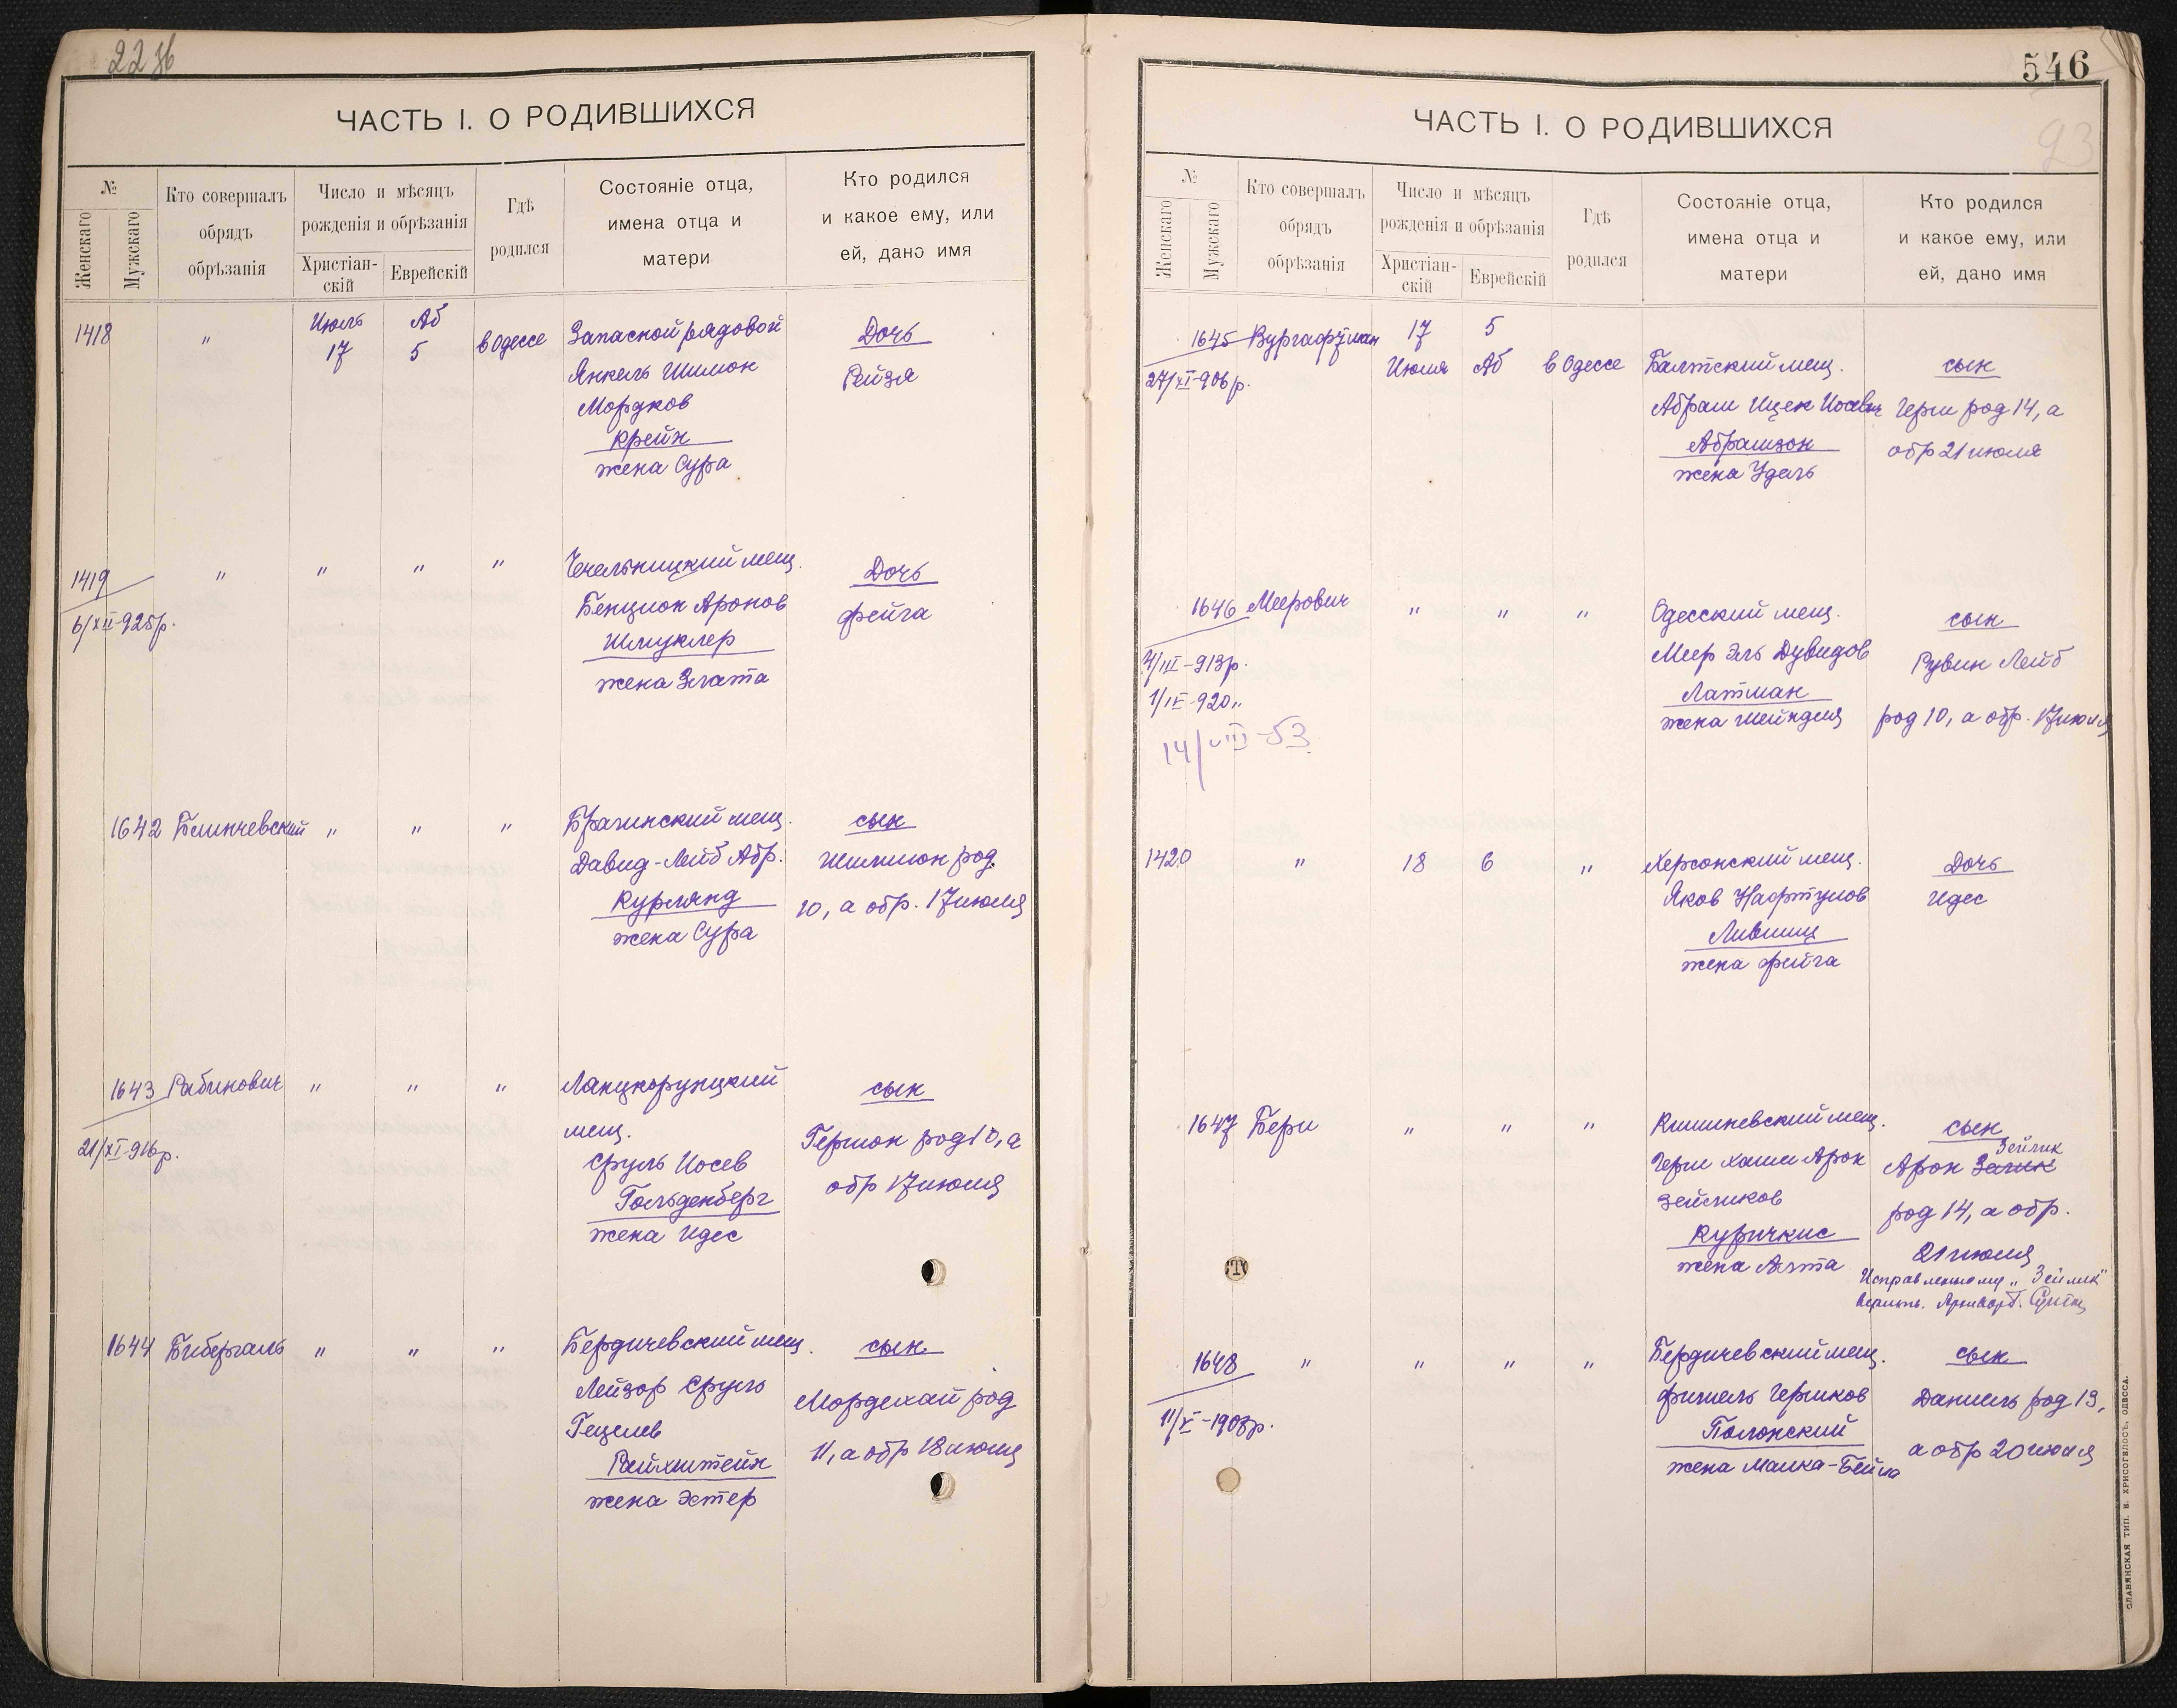 ЧАСТЬ I. О РОДИВШИХСЯ
№
Женскаго
Мужскаго
Кто совершалъ
обрядъ
обрѣзанія
Число и мѣсяцъ
рожденія и обрѣзанія
Христіан-
скій
Еврейскій
Гдѣ
родился
Состояніе отца,
имена отца и
матери
Кто родился
и какое ему, или
ей, дано имя
1418 " Июль 17 Аб 5 в Одессе Запасной рядовой Дочь
Янкель Шимон Рейзя
Мордков
Крейн
жена Сура
1419 " " " " Чечельницкий мещ. Дочь
6/XII-925р. Бенцион Аронов Фейга
Шмуклер
жена Злата
1642 Блинчевский " " " Брагинский мещ. сын
Давид-Лейб Абр. Шимшон род.
Курлянд 10, а обр. 17 июля
жена Сура
1643 Рабинович " " " Ланцкорунцкий сын
21/XI-916р. мещ. Гершон род 10, а
Сруль Иосев обр 17 июля
Гольденберг
жена Идес
1644 Бибергаль " " " Бердичевский мещ. сын
Лейзор Сруль Мордехай род
Гецелев 11, а обр 18 июля
Райхштейн
жена Эстер
546
93
ЧАСТЬ I. О РОДИВШИХСЯ
№
Женскаго
Мужскаго
Кто совершалъ
обрядъ
обрѣзанія
Число и мѣсяцъ
рожденія и обрѣзанія
Христіан-
скій
Еврейскій
Гдѣ
родился
Состояніе отца,
имена отца и
матери
Кто родился
и какое ему, или
ей, дано имя
1645 Вургафтман 17 5
Июля Аб в Одессе Балтский мещ. сын
Абрам Ицек Иосевич Герш род 14, а
Абрамзон обр 21 июля
жена Удель
1646 Меерович " " " Одесский мещ. сын
4/III-913р. Меер Эль Дувидов Рувин Лейб
1/IV-920" Латман
14/VIII-53 жена Шейндля род 10, а обр. 17 июля
1420 " 18 6 " Херсонский мещ. Дочь
Яков Нафтулов Идес
Лившиц
жена Фейга
1647 Бери " " " Кишиневский мещ. сын
Герш Хаим Арон Арон Зелик Зейлик
Зейликов род 14, а обр.
Куричкис 21 июля
жена Алта
Исправленному "Зейлик"
верить.
1648 " " " " Бердичевский мещ. сын
11/X-1908р. Фишель Гершков Даниель род 13,
Полонский а обр 20 июля
жена Малка-Бейла
СЛАВЯНСКАЯ ТИП. Н. ХРИСОГЕЛОСЪ, ОДЕССА.